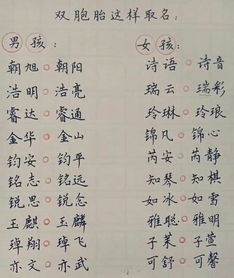 双胞胎这样取名：
男孩： 女孩：
朝旭 朝阳 诗语 诗音
浩明 浩亮 瑞云 瑞彩
睿达 睿通 玲琳 玲琅
金华 金山 锦凡 锦心
钧安 钧平 芮安 芮静
铭志 铭远 知琴 知棋
锐思 锐念 如冰 如雪
玉麒 玉麟 雅聪 雅明
璋翔 璋飞 子茱 子萱
亦文 亦武 可舒 可馨